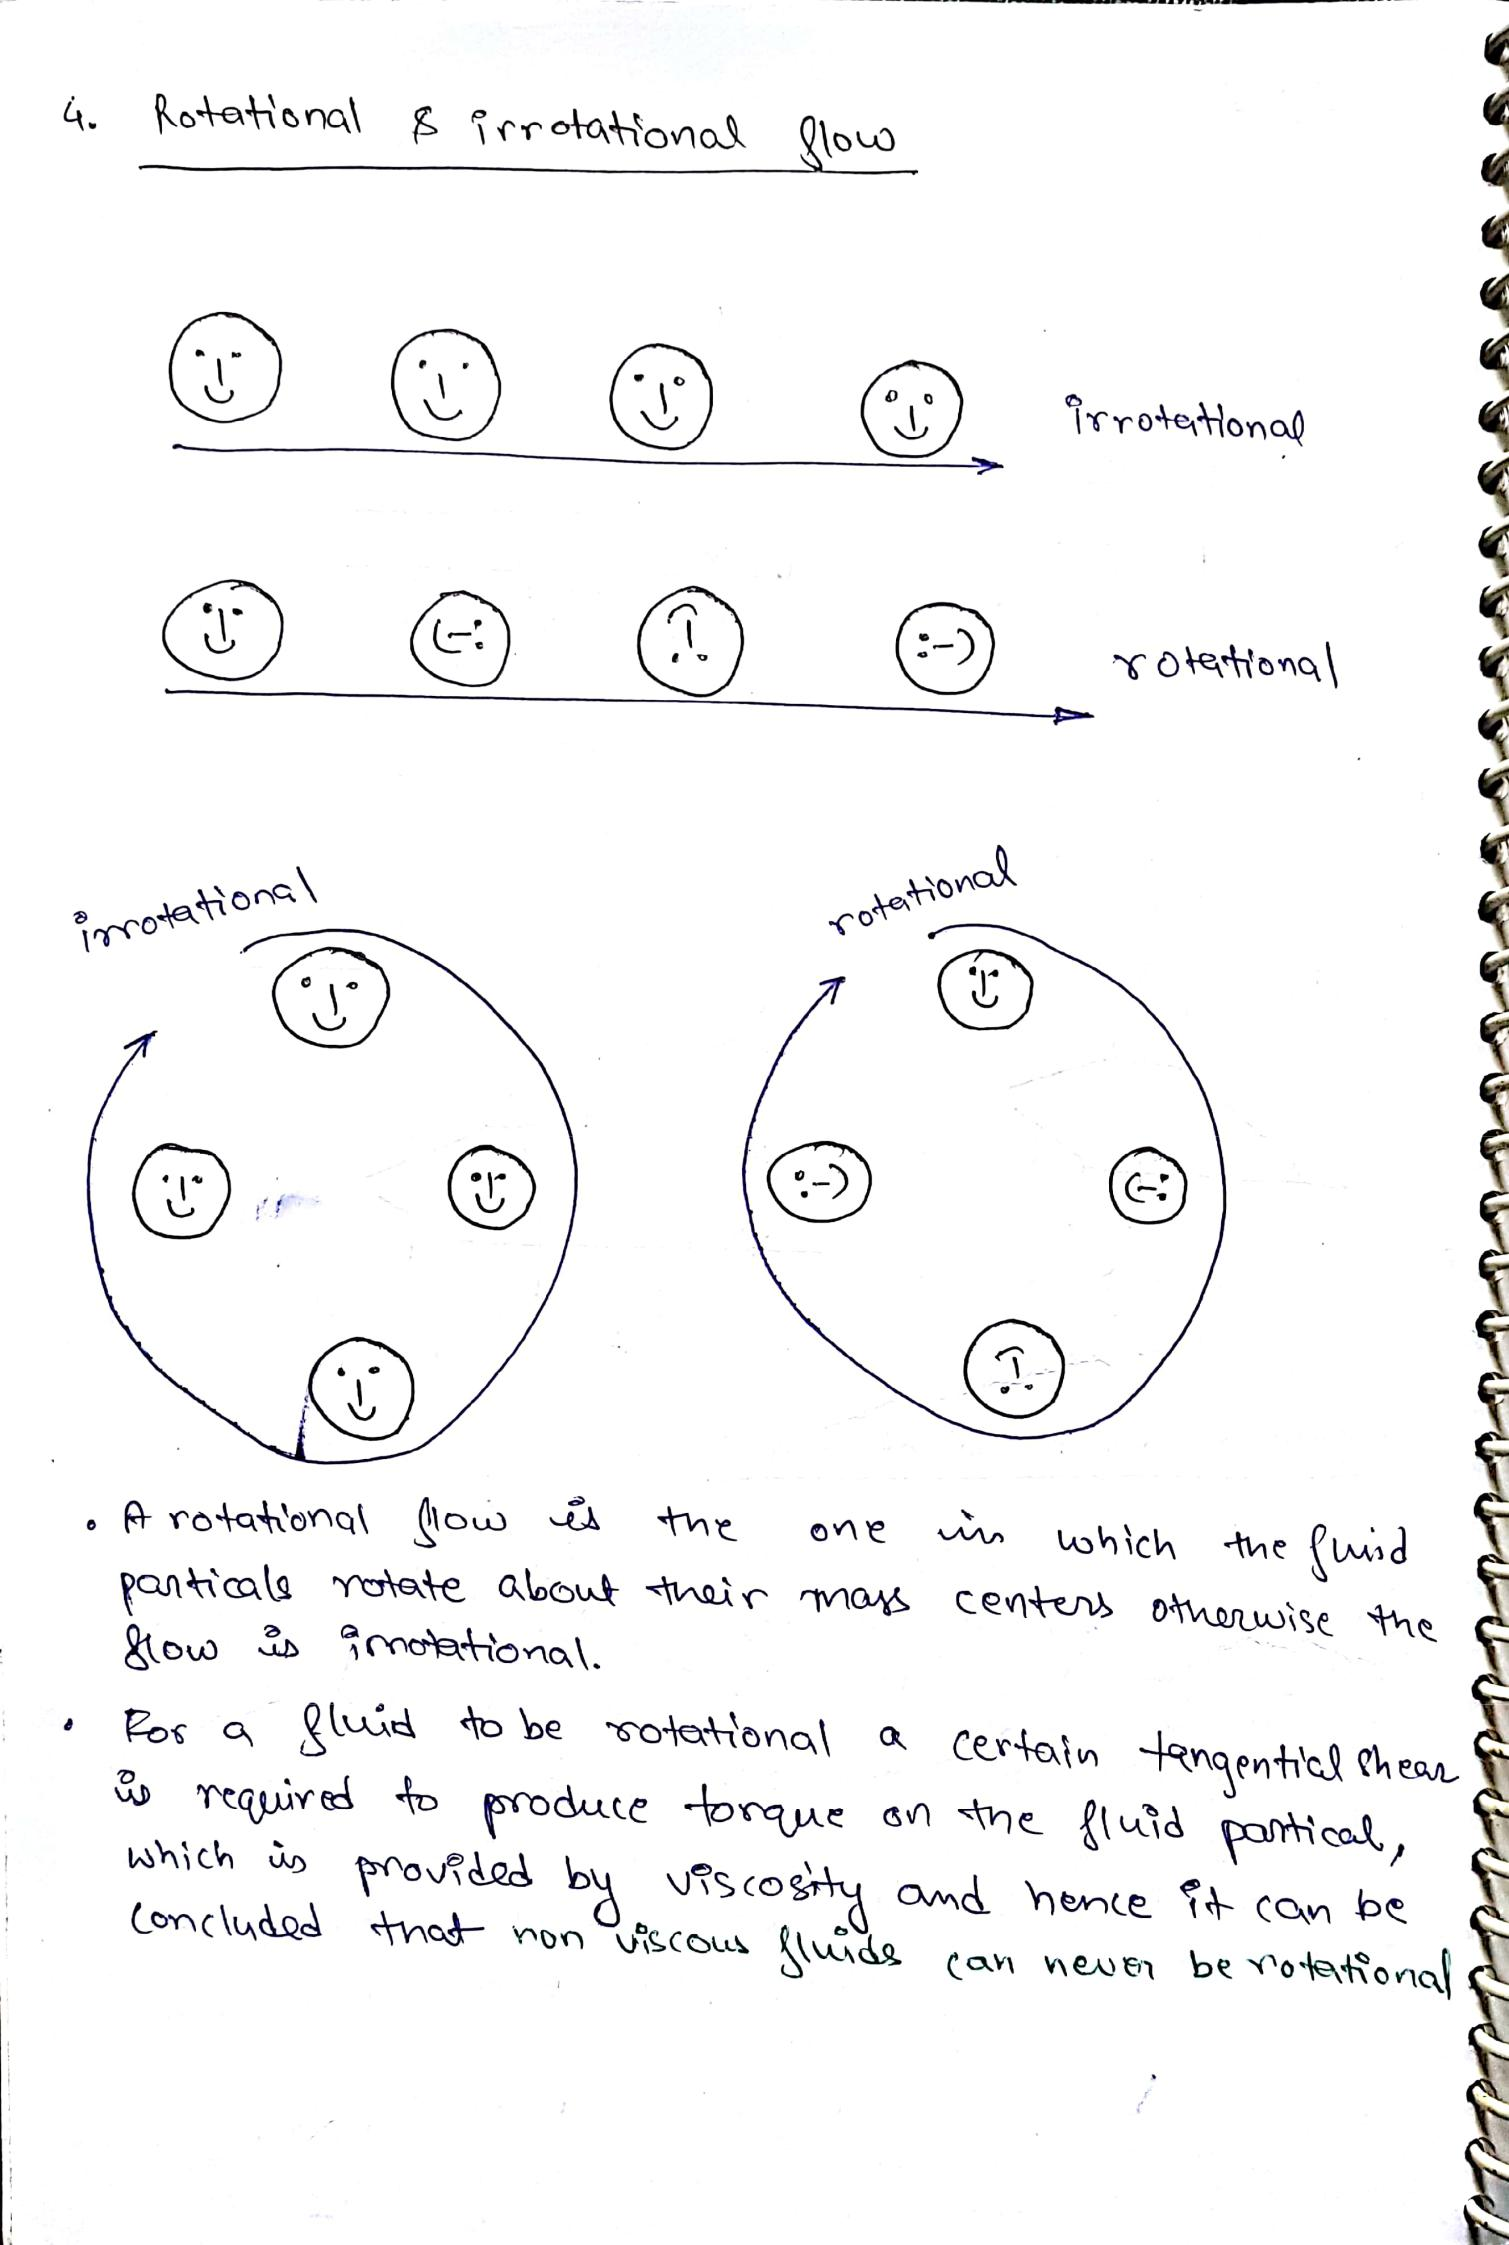 4. Rotational & irrotational flow
irrotational
rotational
irrotational
rotational
• A rotational flow is the one in which the fluid
particals rotate about their mass centers otherwise the
flow is irrotational.
• For a fluid to be rotational a certain tangential shear
is required to produce torque on the fluid partical,
which is provided by viscosity and hence it can be
concluded that non viscous fluids can never be rotational